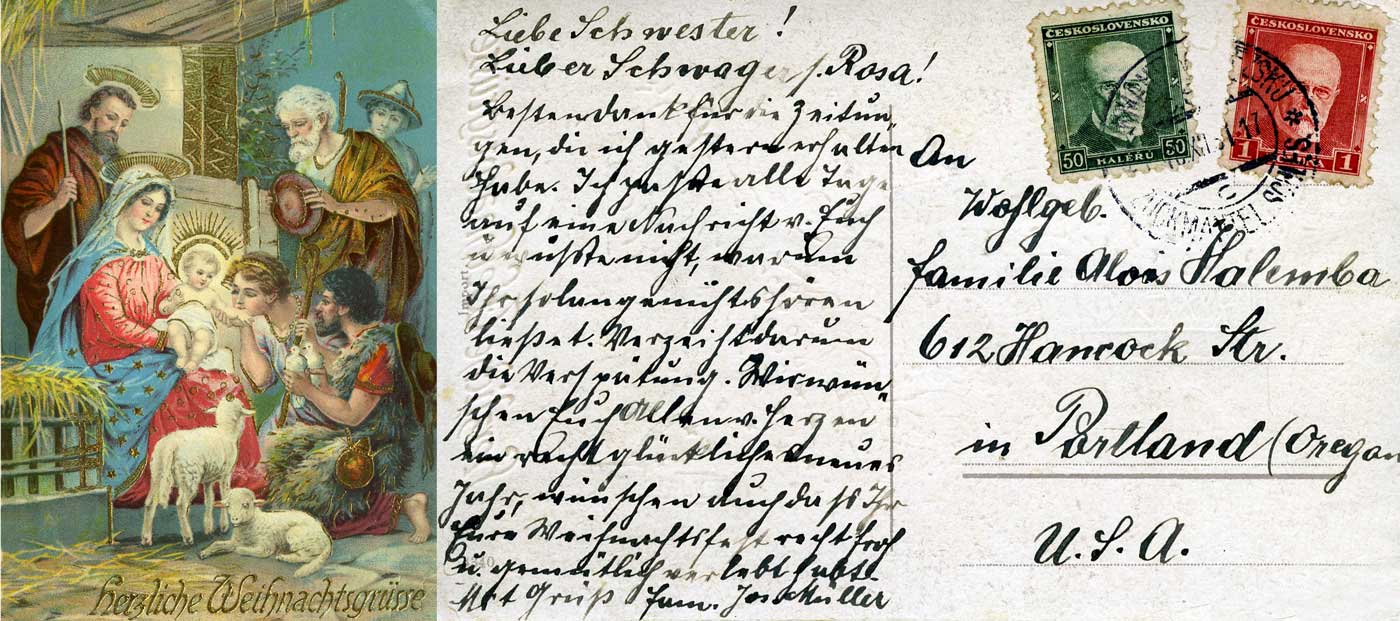 Herzliche Weihnachtsgrüsse
Liebe Schwester!
Lieber Schwager, Rosa!
Besten Dank für die Zeitun
gen, die ich gestern erhalten
habe. Ich passte alle Tage
auf eine Nachricht v. Euch
u. wußte nicht, warum
Ihr solange nichts hören
ließet. Verzeiht darum
die Verspätung. Wir wün
schen Euch Allen v. Herzen
ein recht glückliches neues
Jahr, wünschen auch dass Ihr
Eure Weihnachtsfest recht froh
u. gemütlich verlebt habt.
Mit Gruß Fam. Jos. Müller
ČESKOSLOVENSKO
50 HALÉŘU 50
ČESKOSLOVENSKO
1 1
An
Wohlgeb.
Familie Alois Halemba
612 Hancock Str.
in Portland (Oregon
U. S. A.